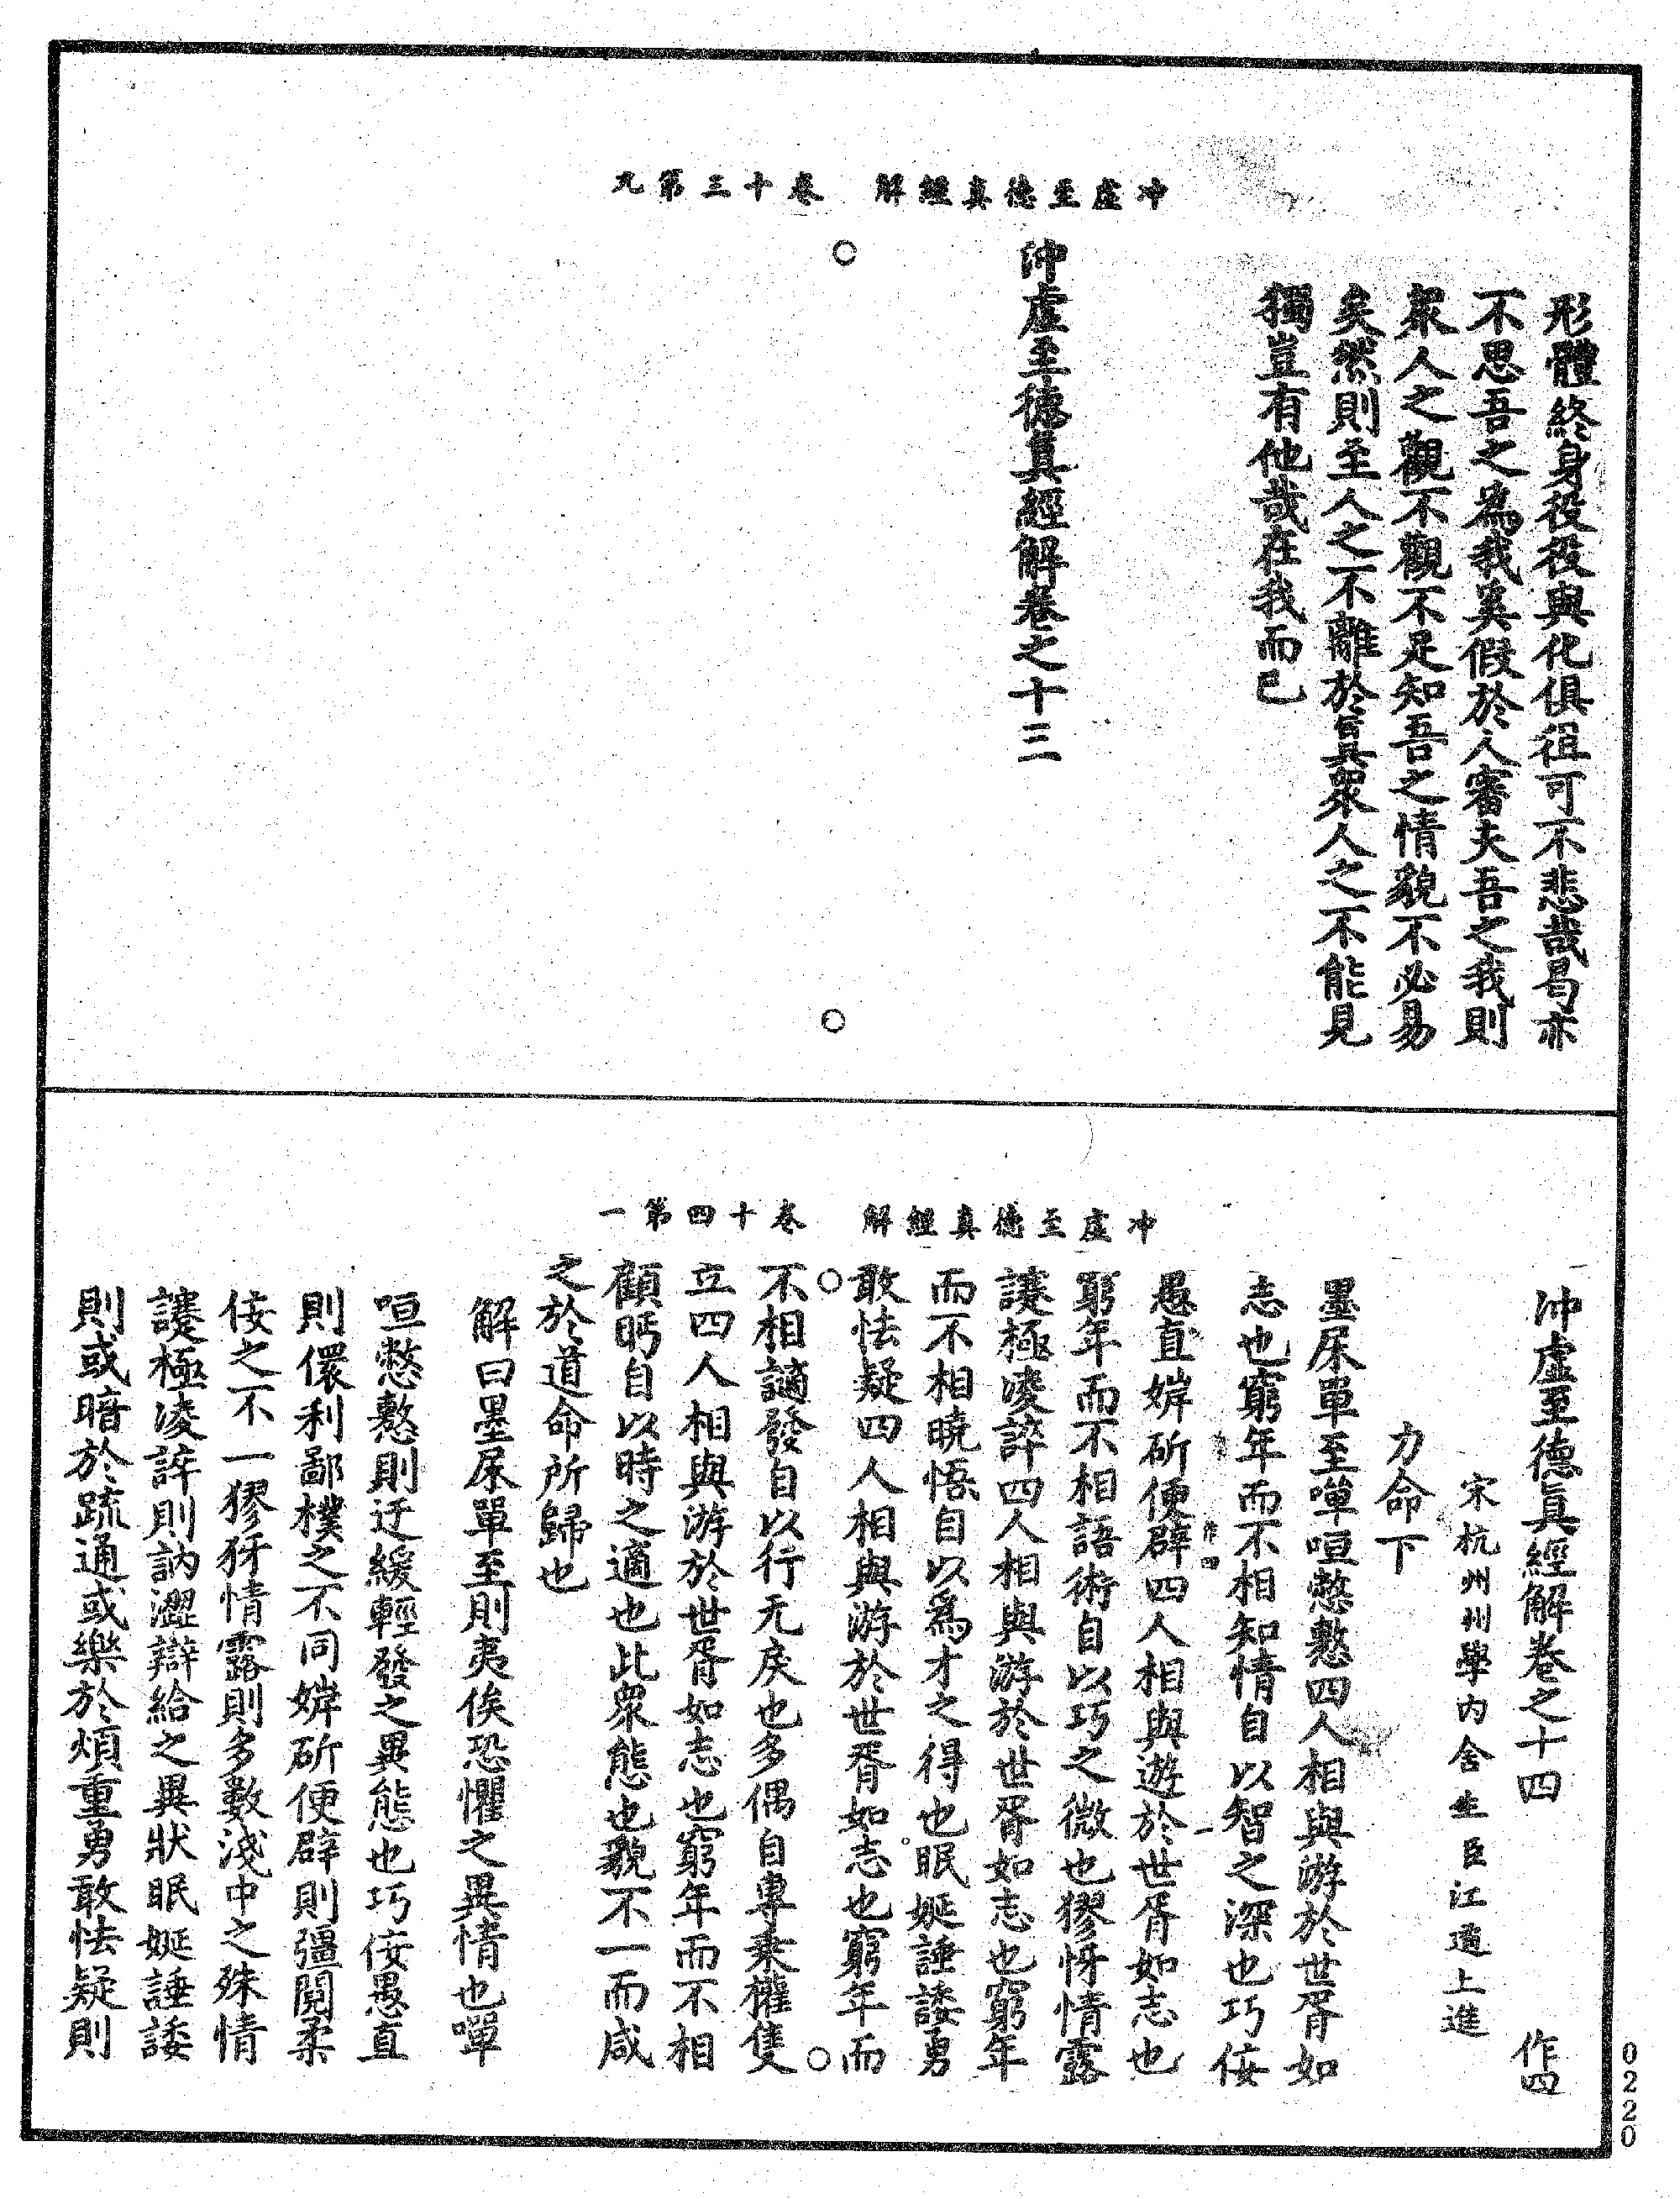 冲虛至德真經解　卷十三第九
形體終身役役與化俱徂可不悲哉曷亦
不思吾之為我奚假於人審夫吾之我則
眾人之觀不觀不足知吾之情貌不必易
矣然則至人之不離於真眾人之不能見
獨豈有他哉在我而已
沖虛至德真經解卷之十三
冲虛至德真經解　卷十四第一
沖虛至德真經解卷之十四　作四
宋杭州州學內舍生臣江遹上進
力命下
墨杘單至嘽咺憋懯四人相與游於世胥如
志也窮年而不相知情自以智之深也巧佞
愚直婩斫便辟四人相與遊於世胥如志也
窮年而不相語術自以巧之微也㺒㤉情露
𧮈極凌誶四人相與游於世胥如志也窮年
而不相曉悟自以爲才之得也眠娗諈諉勇
敢怯疑四人相與游於世胥如志也窮年而
不相讁發自以行无戾也多偶自專乘權隻
立四人相與游於世胥如志也窮年而不相
顧眄自以時之適也此眾態也貌不一而咸
之於道命所歸也
解曰墨杘單至則夷俟恐懼之異情也嘽
咺憋懯則迂緩輕發之異態也巧佞愚直
則儇利鄙樸之不同婩斫便辟則彊閱柔
佞之不一㺒犽情露則多數淺中之殊情
𧮈極凌誶則訥澀辯給之異狀眠娗諈諉
則或暗於疏通或樂於煩重勇敢怯疑則
0220